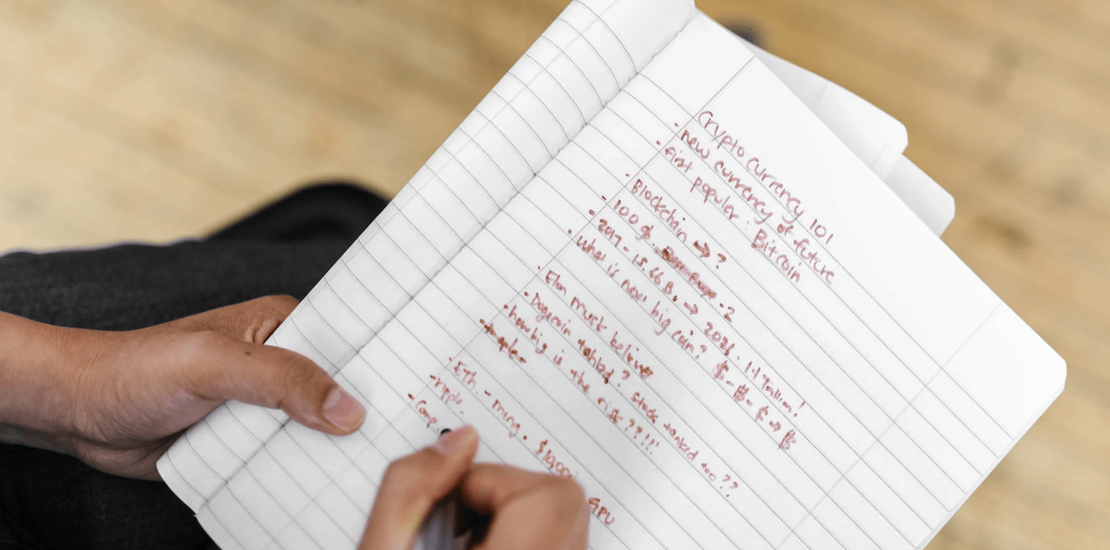 Crypto currency 101
- new currency of future
- first popular: Bitcoin
- Blockchain → ?
- 100 %. - 2
- 2017 - 15.66 B. → 2021. 1.1 Trillion!
- What is next big coin? $ - $ - $ → $
- Elon musk believe
- Dogecoin tanked? stock tanked too??
- how big is the risk????!!!
- Eth. - ming. GPU
- ripple.
- Comp.